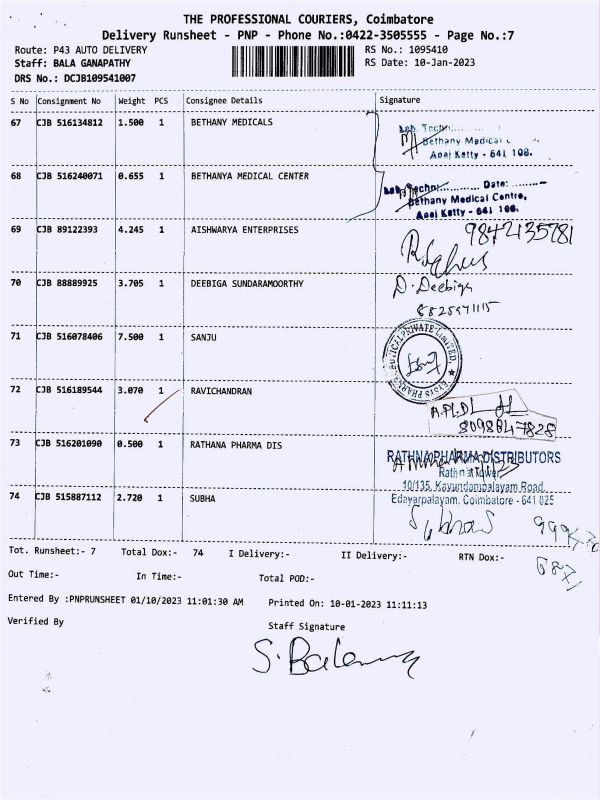 THE PROFESSIONAL COURIERS, Coimbatore
Delivery Runsheet - PNP - Phone No.:0422-3505555 - Page No.:7
Route: P43 AUTO DELIVERY RS No.: 1095410
Staff: BALA GANAPATHY RS Date: 10-Jan-2023
DRS No.: DCJB109541007
S No Consignment No Weight PCS Consignee Details Signature
67 CJB 516134812 1.500 1 BETHANY MEDICALS
Bethany Medical
Apaj Katty - 641 108.
68 CJB 516240071 0.655 1 BETHANYA MEDICAL CENTER
Date:
Bethany Medical Centre,
Apaj Katty - 641 108.
69 CJB 89122393 4.245 1 AISHWARYA ENTERPRISES
9842135781
70 CJB 88889925 3.705 1 DEEBIGA SUNDARAMOORTHY
D. Deebiga
71 CJB 516078406 7.500 1 SANJU
72 CJB 516189544 3.070 1 RAVICHANDRAN
8098847828
73 CJB 516201090 0.500 1 RATHANA PHARMA DIS
RATHNA PHARMA DISTRIBUTORS
10/135, Kavundampalayam Road,
Edayarpalayam, Coimbatore - 641 025
74 CJB 515887112 2.720 1 SUBHA
Tot. Runsheet:- 7 Total Dox:- 74 I Delivery:- II Delivery:- RTN Dox:-
Out Time:- In Time:- Total POD:-
Entered By :PNPRUNSHEET 01/10/2023 11:01:30 AM Printed On: 10-01-2023 11:11:13
Verified By Staff Signature